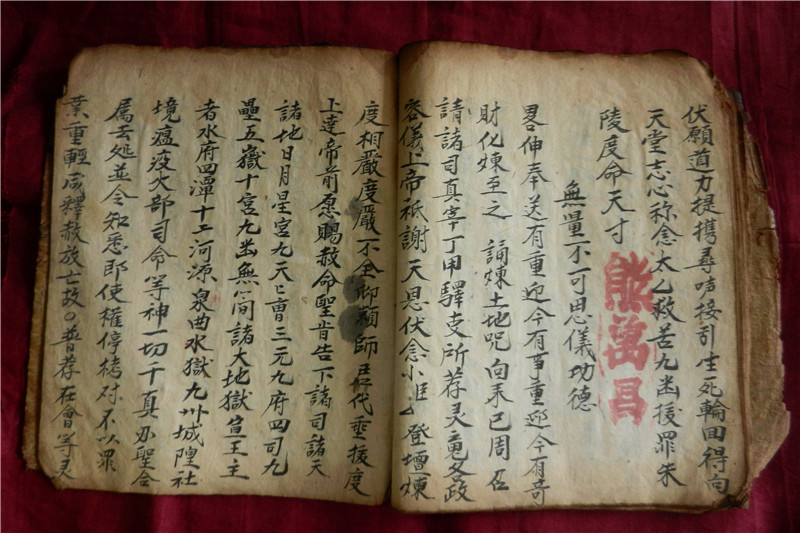 伏願道力提携尋声接引生死輪回得向
天堂志心称念太乙救苦九幽拔罪朱
陵度命天尊
熊萬昌
無量不可思儀功德
畧伸奉送有重迎今有事重迎今有奇
財化煉至之 誦煉土地咒向来已周 伍
請諸司真宰丁甲驛吏所荐灵竟各政
容儀上帝祇謝天恩伏念小臣 登壇煉
度相嚴度嚴不全仰賴師 代垂援度
上達帝前愿賜赦命聖旨告下諸司諸天
諸地日月星宮九天上曹三元九府四司九
壘五嶽十宮九幽無間諸大地獄冥王主
者水府四潭十二河源泉曲水獄九州城隍社
境瘟疫火部司命等神一切千真万聖合
属去处並令知悉即使權停栲对不以罪
業重輕咸釋赦放亡故〇普荐在會等灵